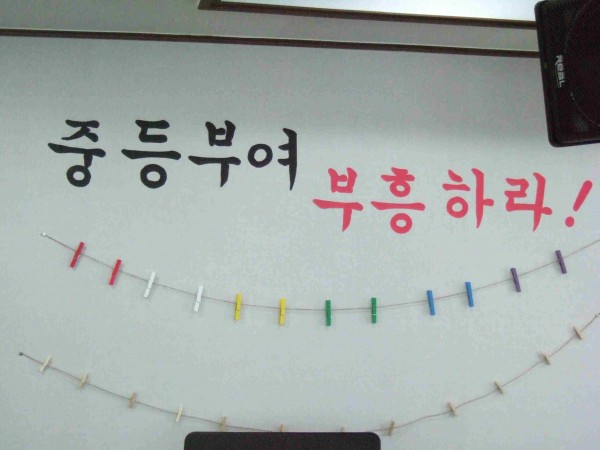 중등부여
부흥하라!
Real